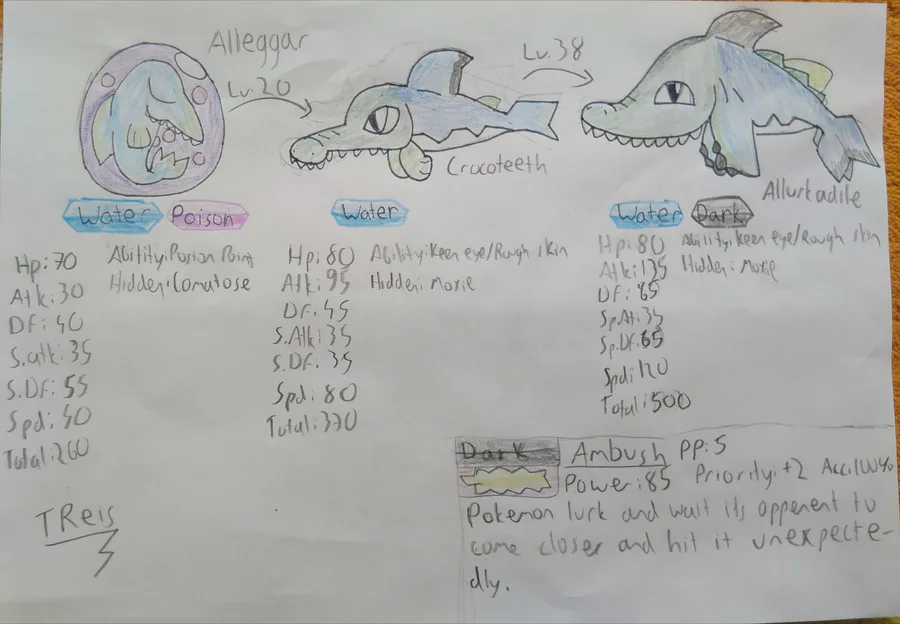 Alleggar
Lv.20
Lv.38
Crocoteeth
Allurkadile
Water Poison
Water
Water Dark
Hp:70
Atk:30
Df:40
S.atk:35
S.Df:55
Spd:
Total:260
Ability:Poison Point
Hidden:Comatose
Hp:80
Atk:95
Df:45
S.Atk:35
S.Df:35
Spd:80
Total:370
Ability:Keen eye/Rough skin
Hidden:Moxie
Hp:80
Atk:135
Df:
Sp.At:35
Sp.Df:65
Spd:120
Total:500
Ability:Keen eye/Rough skin
Hidden:Moxie
Dark Ambush PP:5
Power:85 Priority:+2 Acc:100%
Pokemon lurk and wait its opponent to
come closer and hit it unexpecte-
dly.
TReis